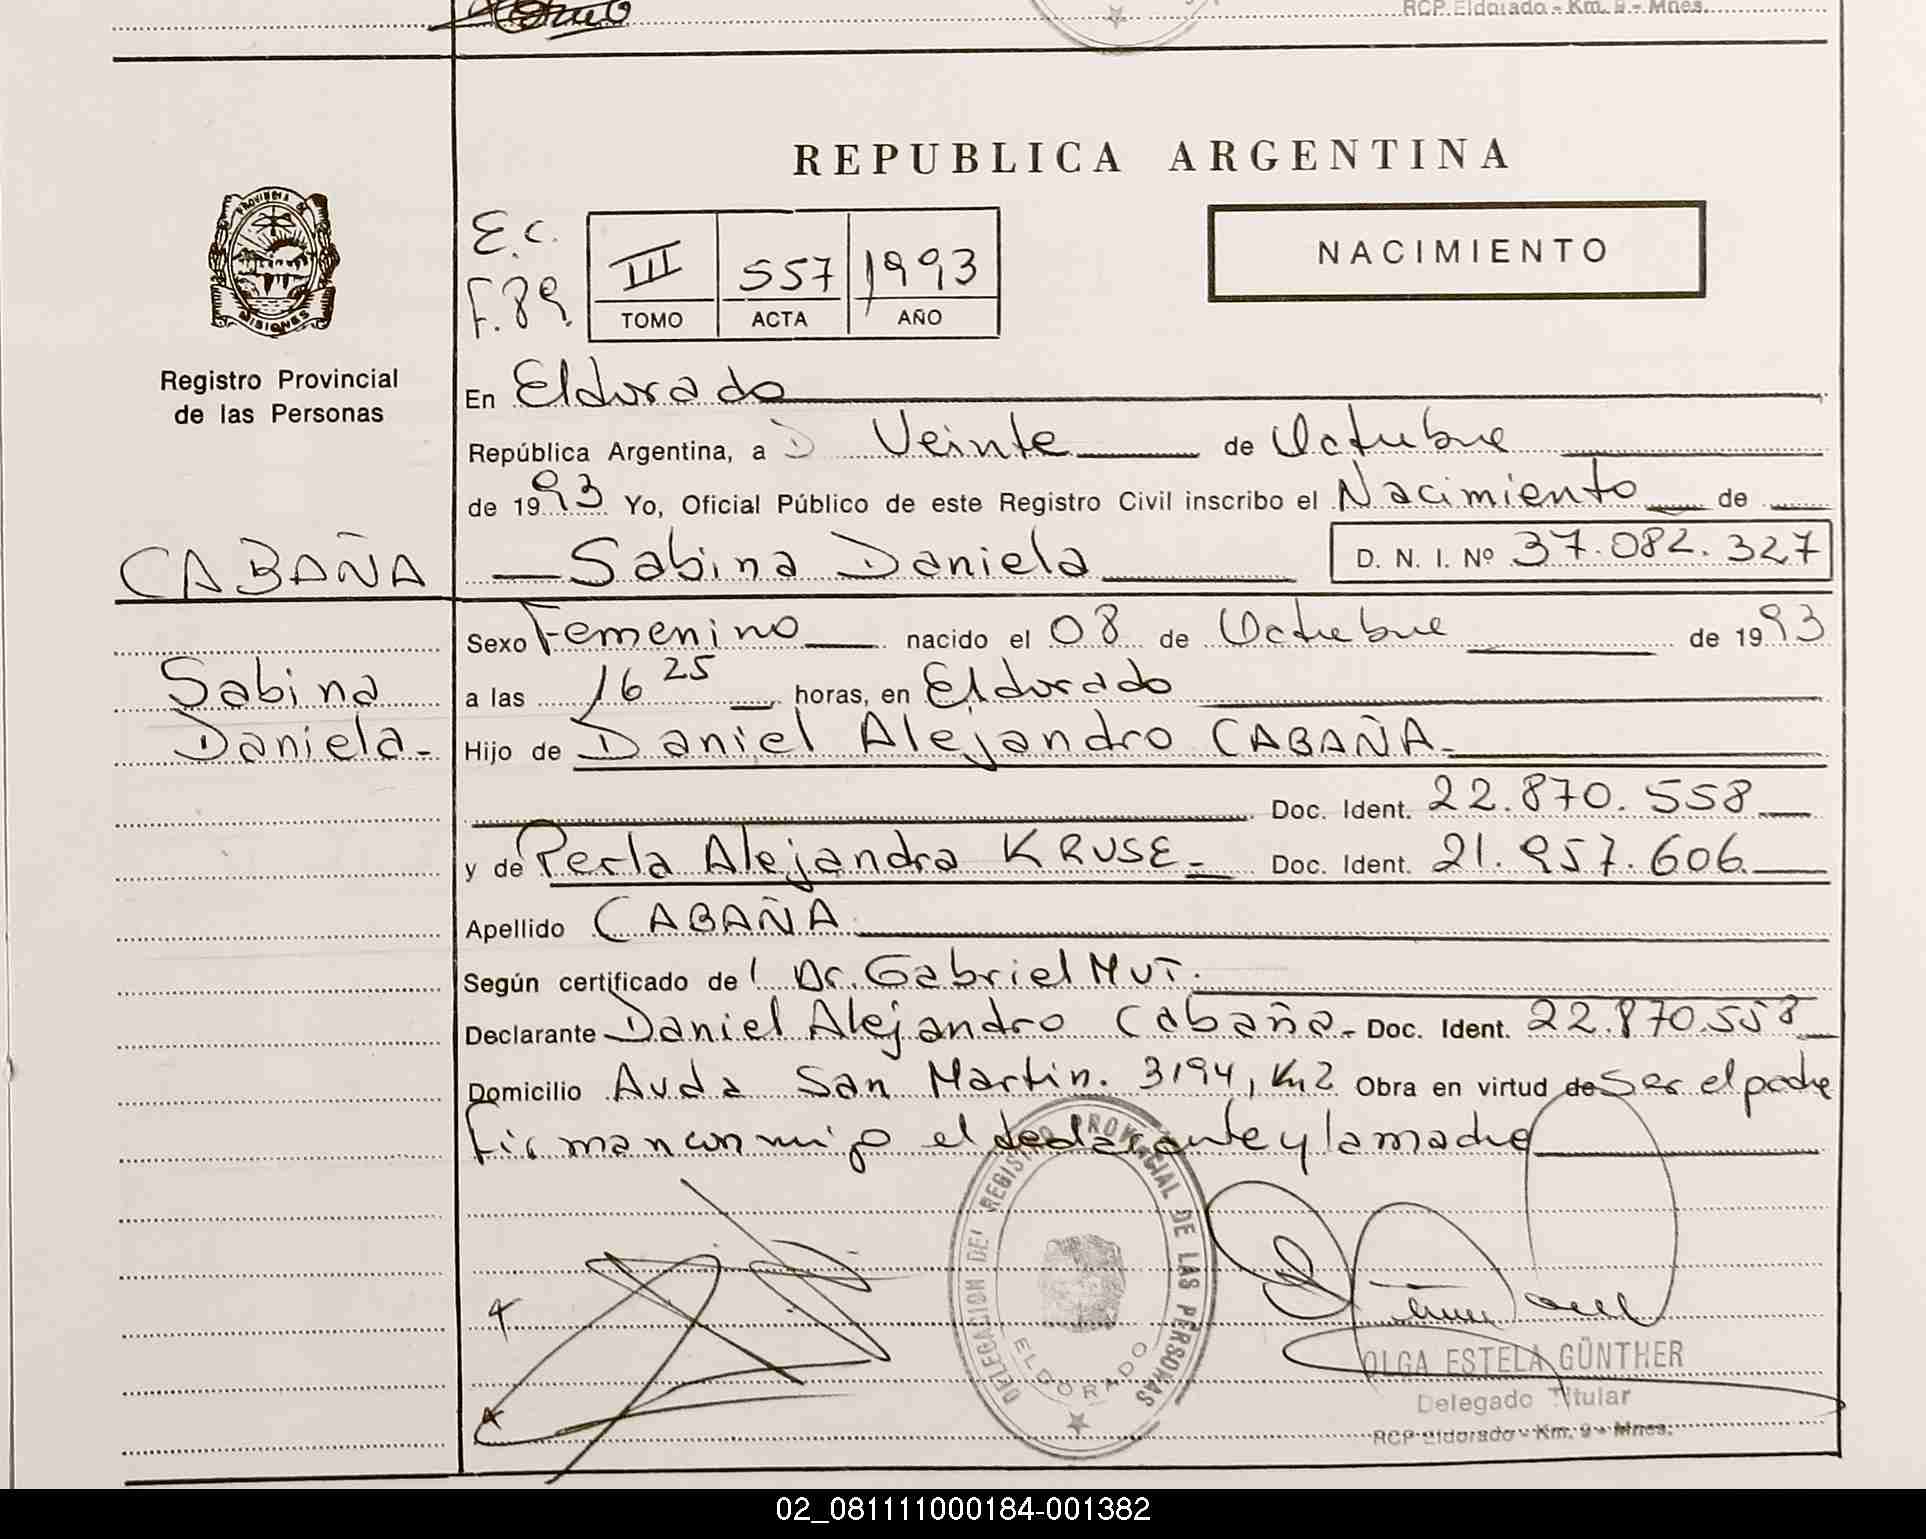 RCP. Eldorado - Km. 9 - Mnes.
REPUBLICA ARGENTINA
PROVINCIA
MISIONES
Registro Provincial
de las Personas
E.C.
F.89.
III 557 1993
TOMO ACTA AÑO
NACIMIENTO
En Eldorado
República Argentina, a Veinte de Octubre
de 1993 Yo, Oficial Público de este Registro Civil inscribo el Nacimiento de
CABAÑA Sabina Daniela D. N. I. Nº 37.082.327
Sexo Femenino nacido el 08 de Octubre de 1993
Sabina a las 16 25 horas, en Eldorado
Daniela- Hijo de Daniel Alejandro CABAÑA-
Doc. Ident. 22.870.558
y de Perla Alejandra KRUSE- Doc. Ident. 21.957.606
Apellido CABAÑA
Según certificado de l Dr. Gabriel MUT.
Declarante Daniel Alejandro Cabaña- Doc. Ident. 22.870.558
Domicilio Avda San Martin. 3194, Km2 Obra en virtud de Ser el padre
firman conmigo el declarante y la madre
DELEGACION DEL REGISTRO PROVINCIAL DE LAS PERSONAS
ELDORADO
OLGA ESTELA GÜNTHER
Delegado Titular
RCP Eldorado - Km. 9 - Mnes.
02_081111000184-001382